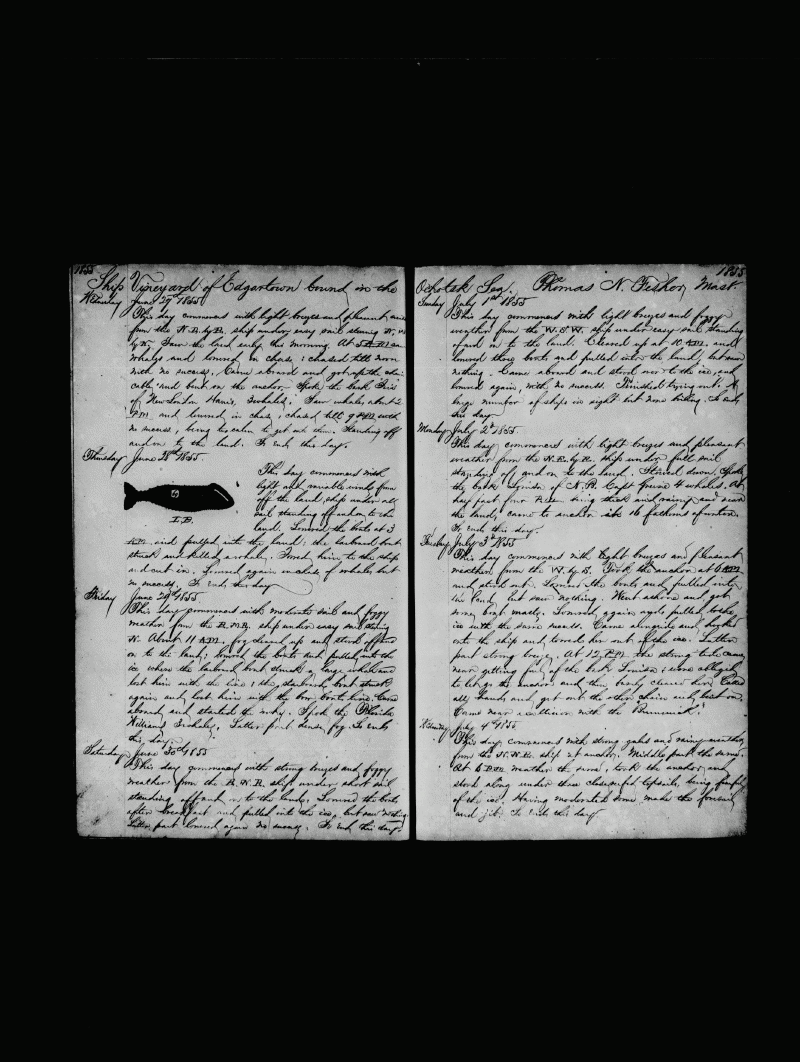 1855
Ship Vineyard of Edgartown bound in the
Wednesday June 27th 1855
This day commences with light breezes and pleasant, and
from the N.E. by E. ship under easy sail steering N.
by W. Saw the land early this morning. At 5 A.M. saw
whales and lowered in chase; chased till noon
with no success. Came aboard and got up the chain
cable and bent on the anchor. Spoke the bark
of New London Harris, 3 whales. Saw whales about 2
P.M. and lowered in chase, chased till 9 P.M. with
no success, being too calm to get on them. Standing off
and on to the land. So ends this day.
Thursday June 28th 1855
This day commences with
light and variable winds from
off the land, ship under all
sail standing off and on to the
land. Lowered the boats at 3
A.M. and pulled into the land; the larboard boat
struck and killed a whale. Towed him to the ship
and cut in. Lowered again in chase of whales but
no success. So ends this day
L.B.
Friday June 29th 1855
This day commences with moderate and foggy
weather from the ship under easy sail steering
N. About 11 A.M. fog cleared up and stood off and
on to the land; lowered the boats and pulled into the
ice where the larboard boat struck a large whale and
lost him with the line; the starboard boat struck
again and lost him with the bow boats line. Came
aboard and started the works. Spoke the Florida
Williams 3 whales. Latter part dense fog. So ends
this day.
Saturday June 30th 1855
This day commences with strong breezes and foggy
weather from the ship under short sail
standing off and on to the land. Lowered the boats
after breakfast and pulled into the ice, but saw nothing.
Latter part lowered again no success. So ends this day
1855
Ochotsk Sea. Thomas N. Fisher, Mast
Sunday July 1st 1855
This day commences with light breezes and foggy
weather from the W.S.W. ship under easy sail standing
off and on to the land. Cleared up at 10 A.M. and
lowered three boats and pulled into the land, but saw
nothing. Came aboard and stood over to the ice, and
lowered again, with no success. Finished trying out. A
large number of ships in sight but none boiling. So ends
this day
Monday July 2d 1855
This day commences with light breezes and pleasant
weather from the ship under full sail
standing off and on to the land. Steered down, spoke
the bark Louisa of N.B. Capt 4 whales. At
half past four P.M. being thick and rainy and near
the land, came to anchor in 16 fathoms of water.
So ends this day.
Tuesday July 3d 1855
This day commences with light breezes and pleasant
weather from the W. by S. Took the anchor at 6 A.M.
and stood out. Lowered the boats and pulled into
the land, but saw nothing. Went ashore and got
some boat masts. Lowered again and pulled to the
ice with the same results. Came alongside and hooked
onto the ship and towed her out of the ice. Latter
part strong breeze. At 12 P.M. the strong tide came
near getting foul of the bark Louisa; were obliged
to let go the anchor and then barely cleared her. Called
all hands and got out the other chain and bent on.
Came near a collision with the Brunswick.
Wednesday July 4th 1855
This day commences with strong gales and rainy weather
from the N.N.E. ship at anchor. Middle part the same.
At 8 P.M. weather the same, took the anchor and
stood along under three close reefed topsails, being
of the ice. Having moderated some, make the foresail
and jib. So ends this day